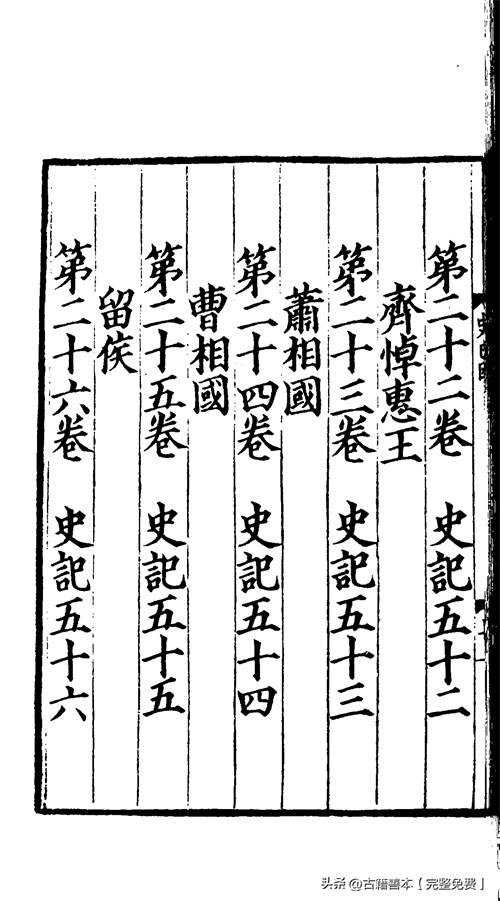 第二十二卷　史記五十二
齊悼惠王
第二十三卷　史記五十三
蕭相國
第二十四卷　史記五十四
曹相國
第二十五卷　史記五十五
留侯
第二十六卷　史記五十六
头条 @古籍善本【完整免费】